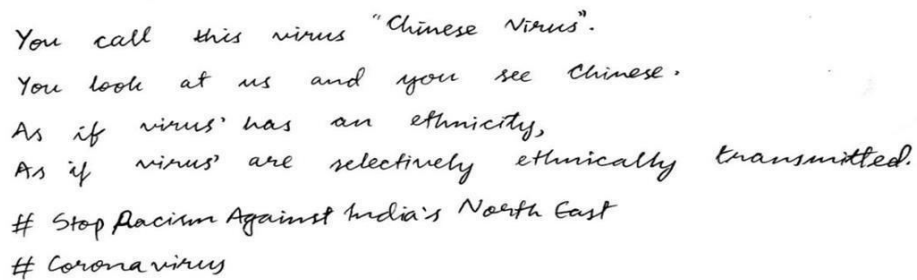 You call this virus "Chinese Virus".
You look at us and you see Chinese.
As if virus' has an ethnicity,
As if virus' are selectively ethnically transmitted.
# Stop Racism Against India's North East
# Coronavirus